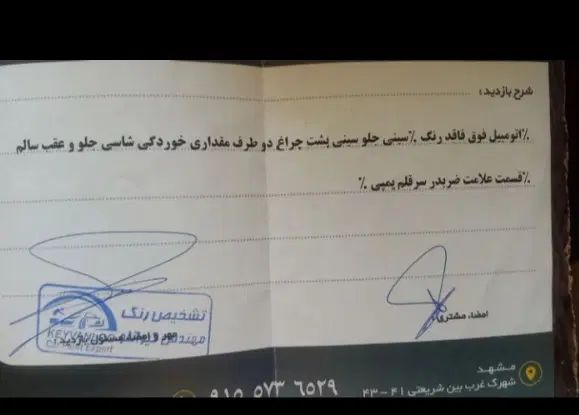 شرح بازدید :
٪اتومبیل فوق فاقد رنگ ٪سینی جلو سینی پشت چراغ دو طرف مقداری خوردگی شاسی جلو و عقب سالم
٪قسمت علامت ضربدر سرقلم پمپی ٪
امضاء مشتری:
تشخیص رنگ
مهندس
مهر و امضاء مسئول بازدید:
مشهد
شهرک غرب بین شریعتی ۴۱ - ۴۳
۹۱۵ ۵۷۳ ۶۵۲۹